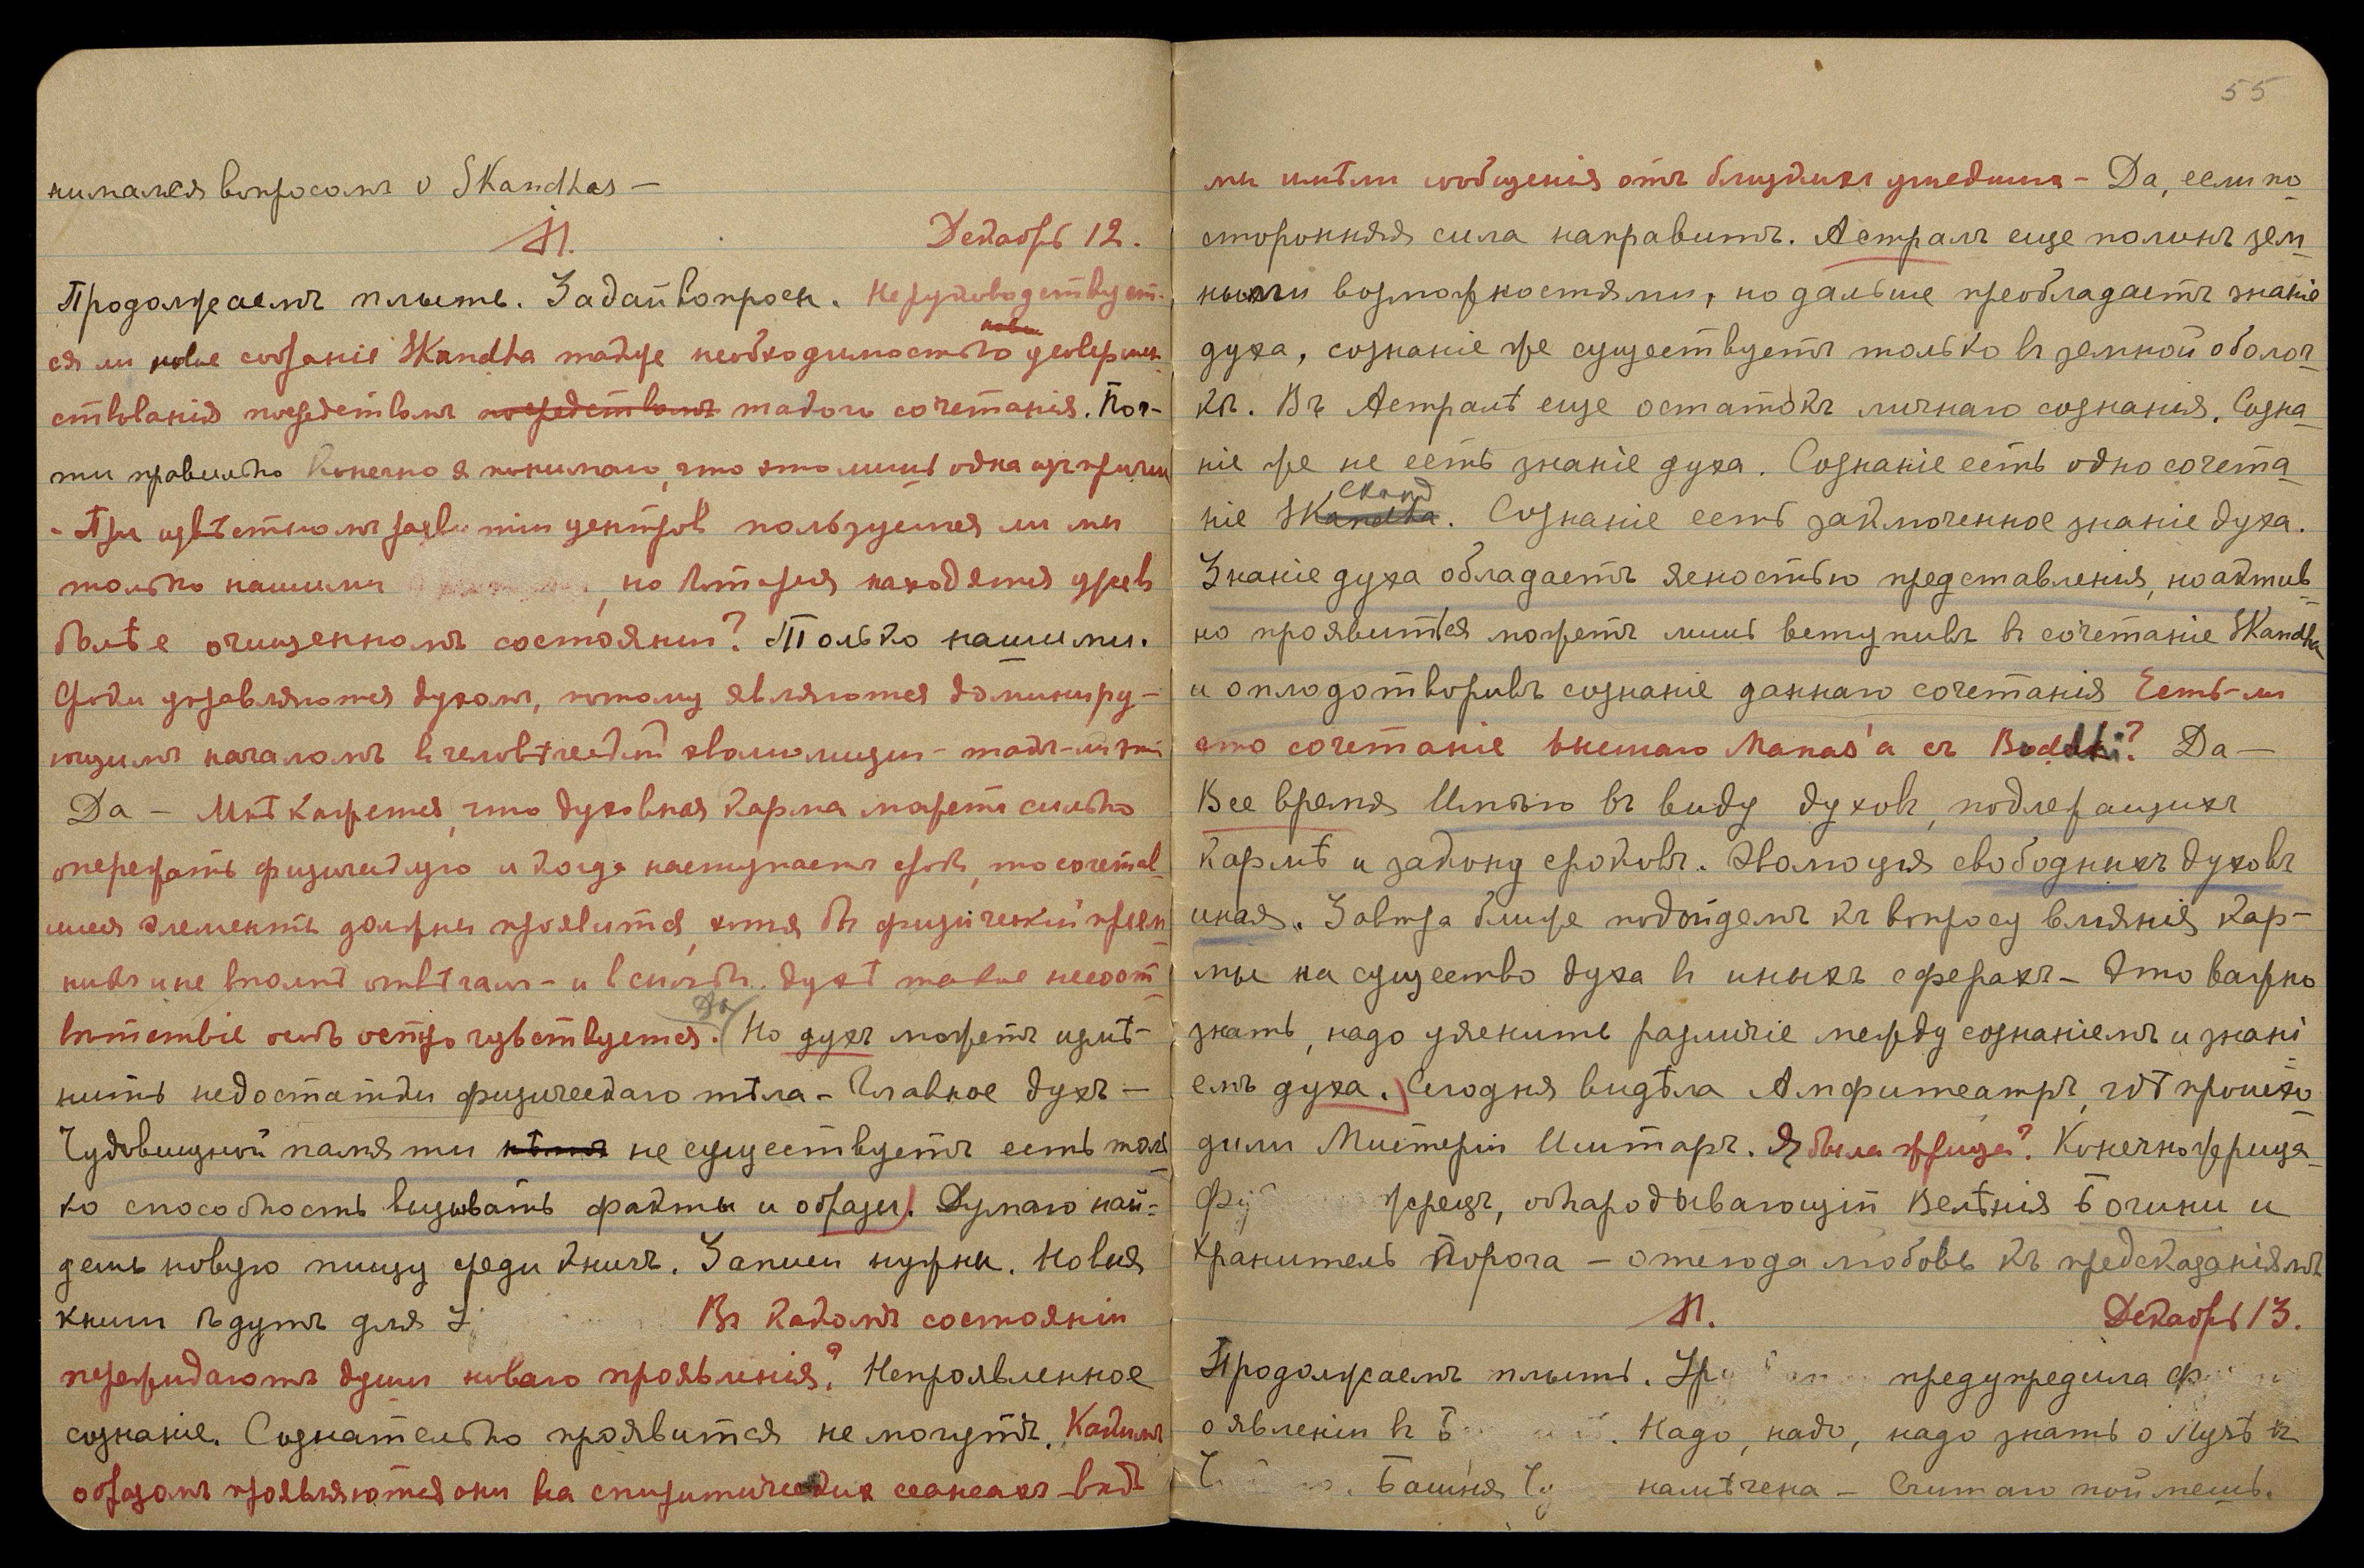 нимался вопросомъ о Skandhas —
Декабрь 12.
Продолжаемъ плыть. Задай вопросы. Не руководствует-
ся ли новое собраніе Skandha также необходимостью усовершен-
ствованія посредствомъ посредствомъ такого сочетанія. Поч-
ти правильно Конечно я понимаю, что это лишь одна изъ причин
- При извѣстномъ развитіи центровъ пользуемся ли мы
только нашими , но которыя находятся уже въ
болѣе очищенномъ состояніи? Только нашими.
Сроки управляются духомъ, потому являются доминиру-
ющимъ началомъ въ человѣческой эволюціи - такъ-ли это
Да — Мнѣ кажется, что духовная карма можетъ сильно
опережать физическую и когда наступаетъ срокъ, то сочетав-
шіеся элементы должны проявиться, хотя бы физическій пріем-
никъ и не вполнѣ отвѣчалъ - и въ духѣ такое несоот-
вѣтствіе остро чувствуется. Да Но духъ можетъ измѣ-
нить недостатки физическаго тѣла - Главное духъ —
Чудовищной памяти нѣтъ не существуетъ есть толь-
ко способность вызывать факты и образы. Думаю най-
дешь новую пищу среди книгъ. Записи нужны. Новыя
книги будутъ для У Въ какомъ состояніи
пережидаютъ души новаго проявленія? Непроявленное
сознаніе. Сознательно проявиться не могутъ. Какимъ
образомъ проявляются они на спиритическихъ сеансахъ - вѣдь
55
мы имѣли сообщенія отъ близкихъ ушедшихъ - Да, если по-
сторонняя сила направитъ. Астралъ еще полонъ зем-
ными возможностями, но дальше преобладаетъ знаніе
духа, сознаніе же существуетъ только въ земной оболоч-
кѣ. Въ Астралѣ еще остатокъ личнаго сознанія. Созна-
ніе же не есть знаніе духа. Сознаніе есть одно сочета-
ніе Skandha сканд. Сознаніе есть заключенное знаніе духа.
Знаніе духа обладаетъ ясностью представленія, но актив-
но проявиться можетъ лишь вступивъ въ сочетаніе Skandha
и оплодотворивъ сознаніе даннаго сочетанія Есть-ли
это сочетаніе высшаго Manas'а съ Buddhi? Да —
Все время Имѣю въ виду духовъ, подлежащихъ
Кармѣ и закону сроковъ. Эволюція свободныхъ духовъ
иная. Завтра ближе подойдемъ къ вопросу вліянія Кар-
мы на существо духа въ иныхъ сферахъ - Это важно
знать, надо уяснить различіе между сознаніемъ и знані-
емъ духа. Сегодня видѣла Амфитеатръ, гдѣ происхо-
дили Мистеріи Иштаръ. Я была жрица? Конечно жрица -
Фу жрецъ, обнародывающій Велѣнія Богини и
Хранитель Порога — отсюда любовь къ предсказаніямъ
Декабрь 13.
Продолжаемъ плыть. предупредила Ф
о явленіи въ Б . Надо, надо, надо знать о Пути къ
. Башня Чу намѣчена — Считаю поймешь.